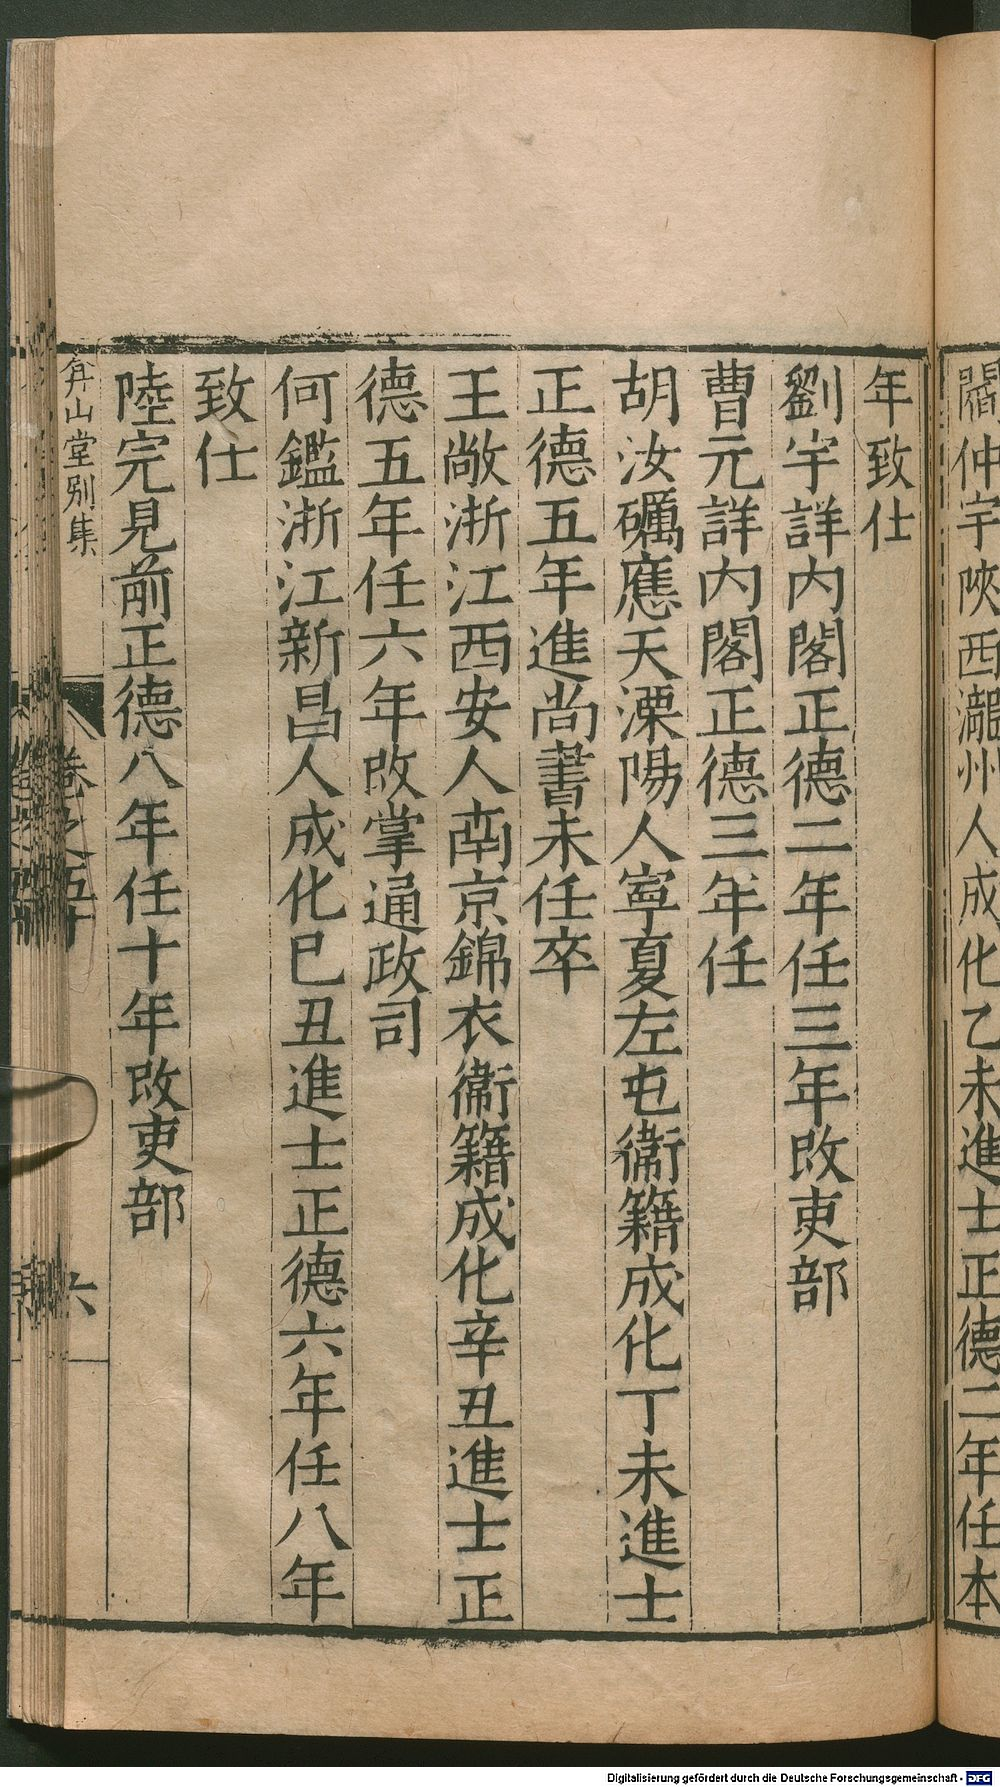 閻仲宇陜西瀧州人成化乙未進士正德二年任本
年致仕
劉宇詳内閣正德二年任三年改吏部
曹元詳内閣正德三年任
胡汝礪應天溧陽人寧夏左屯衞籍成化丁未進士
正德五年進尚書未任卒
王敞浙江西安人南京錦衣衞籍成化辛丑進士正
德五年任六年改掌通政司
何鑑浙江新昌人成化己丑進士正德六年任八年
致仕
陸完見前正德八年任十年改吏部
弇山堂别集
卷之五十
六
Digitalisierung gefördert durch die Deutsche Forschungsgemeinschaft - DFG